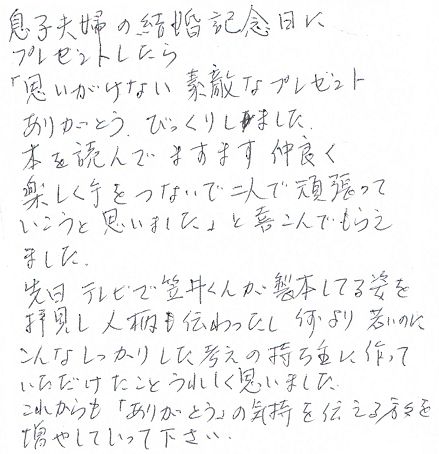 息子夫婦の結婚記念日に
プレゼントしたら
「思いがけない素敵なプレゼント
ありがとう。びっくりしました。
本を読んでますます仲良く
楽しく手をつないで二人で頑張って
いこうと思いました」と喜こんでもらえ
ました。
先日テレビで笠井くんが製本してる姿を
拝見し人柄も伝わったし何より若いのに
こんなしっかりした考えの持ち主に作って
いただけたことうれしく思いました。
これからも「ありがとう」の気持を伝える方々を
増やしていって下さい。